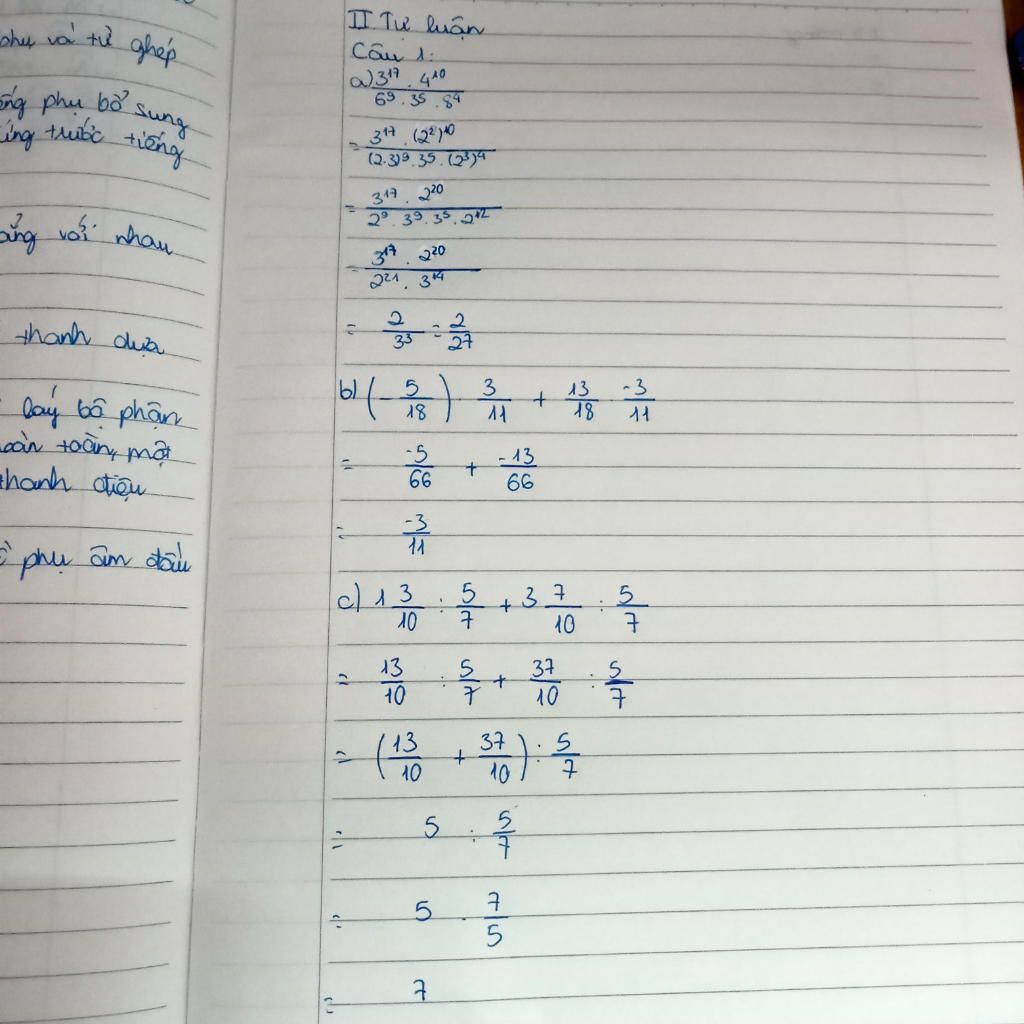 phụ và từ ghép
iếng phụ bổ sung
đứng trước tiếng
ẳng với nhau
thanh dựa
láy bộ phận
toàn toàn, một
thanh điệu
phụ âm đầu
II Tự luận
Câu 1:
a) 3¹⁷ . 4¹⁰ / 6⁹ . 3⁵ . 8⁴
= 3¹⁷ . (2²)¹⁰ / (2.3)⁹ . 3⁵ . (2³)⁴
= 3¹⁷ . 2²⁰ / 2⁹ . 3⁹ . 3⁵ . 2¹²
= 3¹⁷ . 2²⁰ / 2²¹ . 3¹⁴
= 2/3³ = 2/27
b) (- 5/18) . 3/11 + 13/18 . -3/11
= -5/66 + -13/66
= -3/11
c) 1 3/10 : 5/7 + 3 7/10 : 5/7
= 13/10 : 5/7 + 37/10 : 5/7
= (13/10 + 37/10) : 5/7
= 5 : 5/7
= 5 . 7/5
= 7